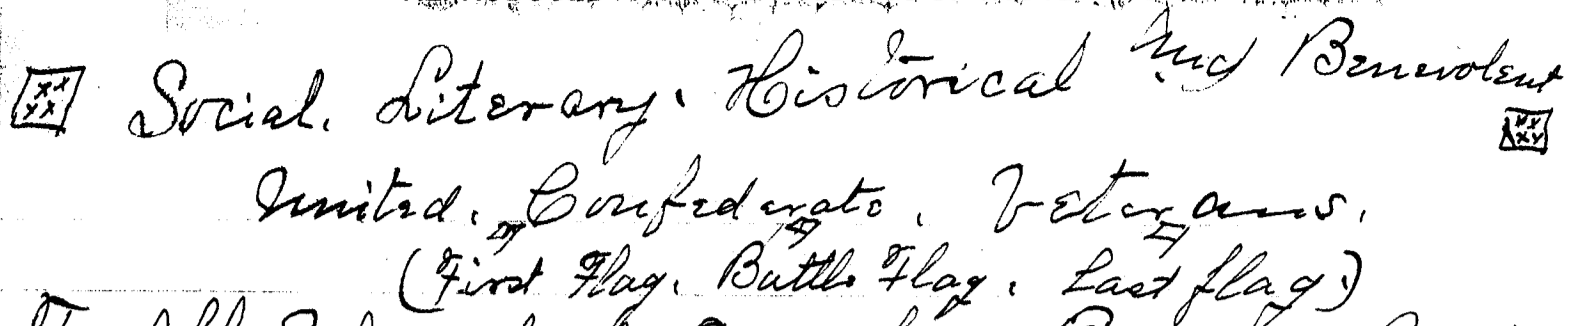 Social. Literary. Historical and Benevolent
United. Confederate. Veterans.
(First Flag. Battle Flag. Last flag.)